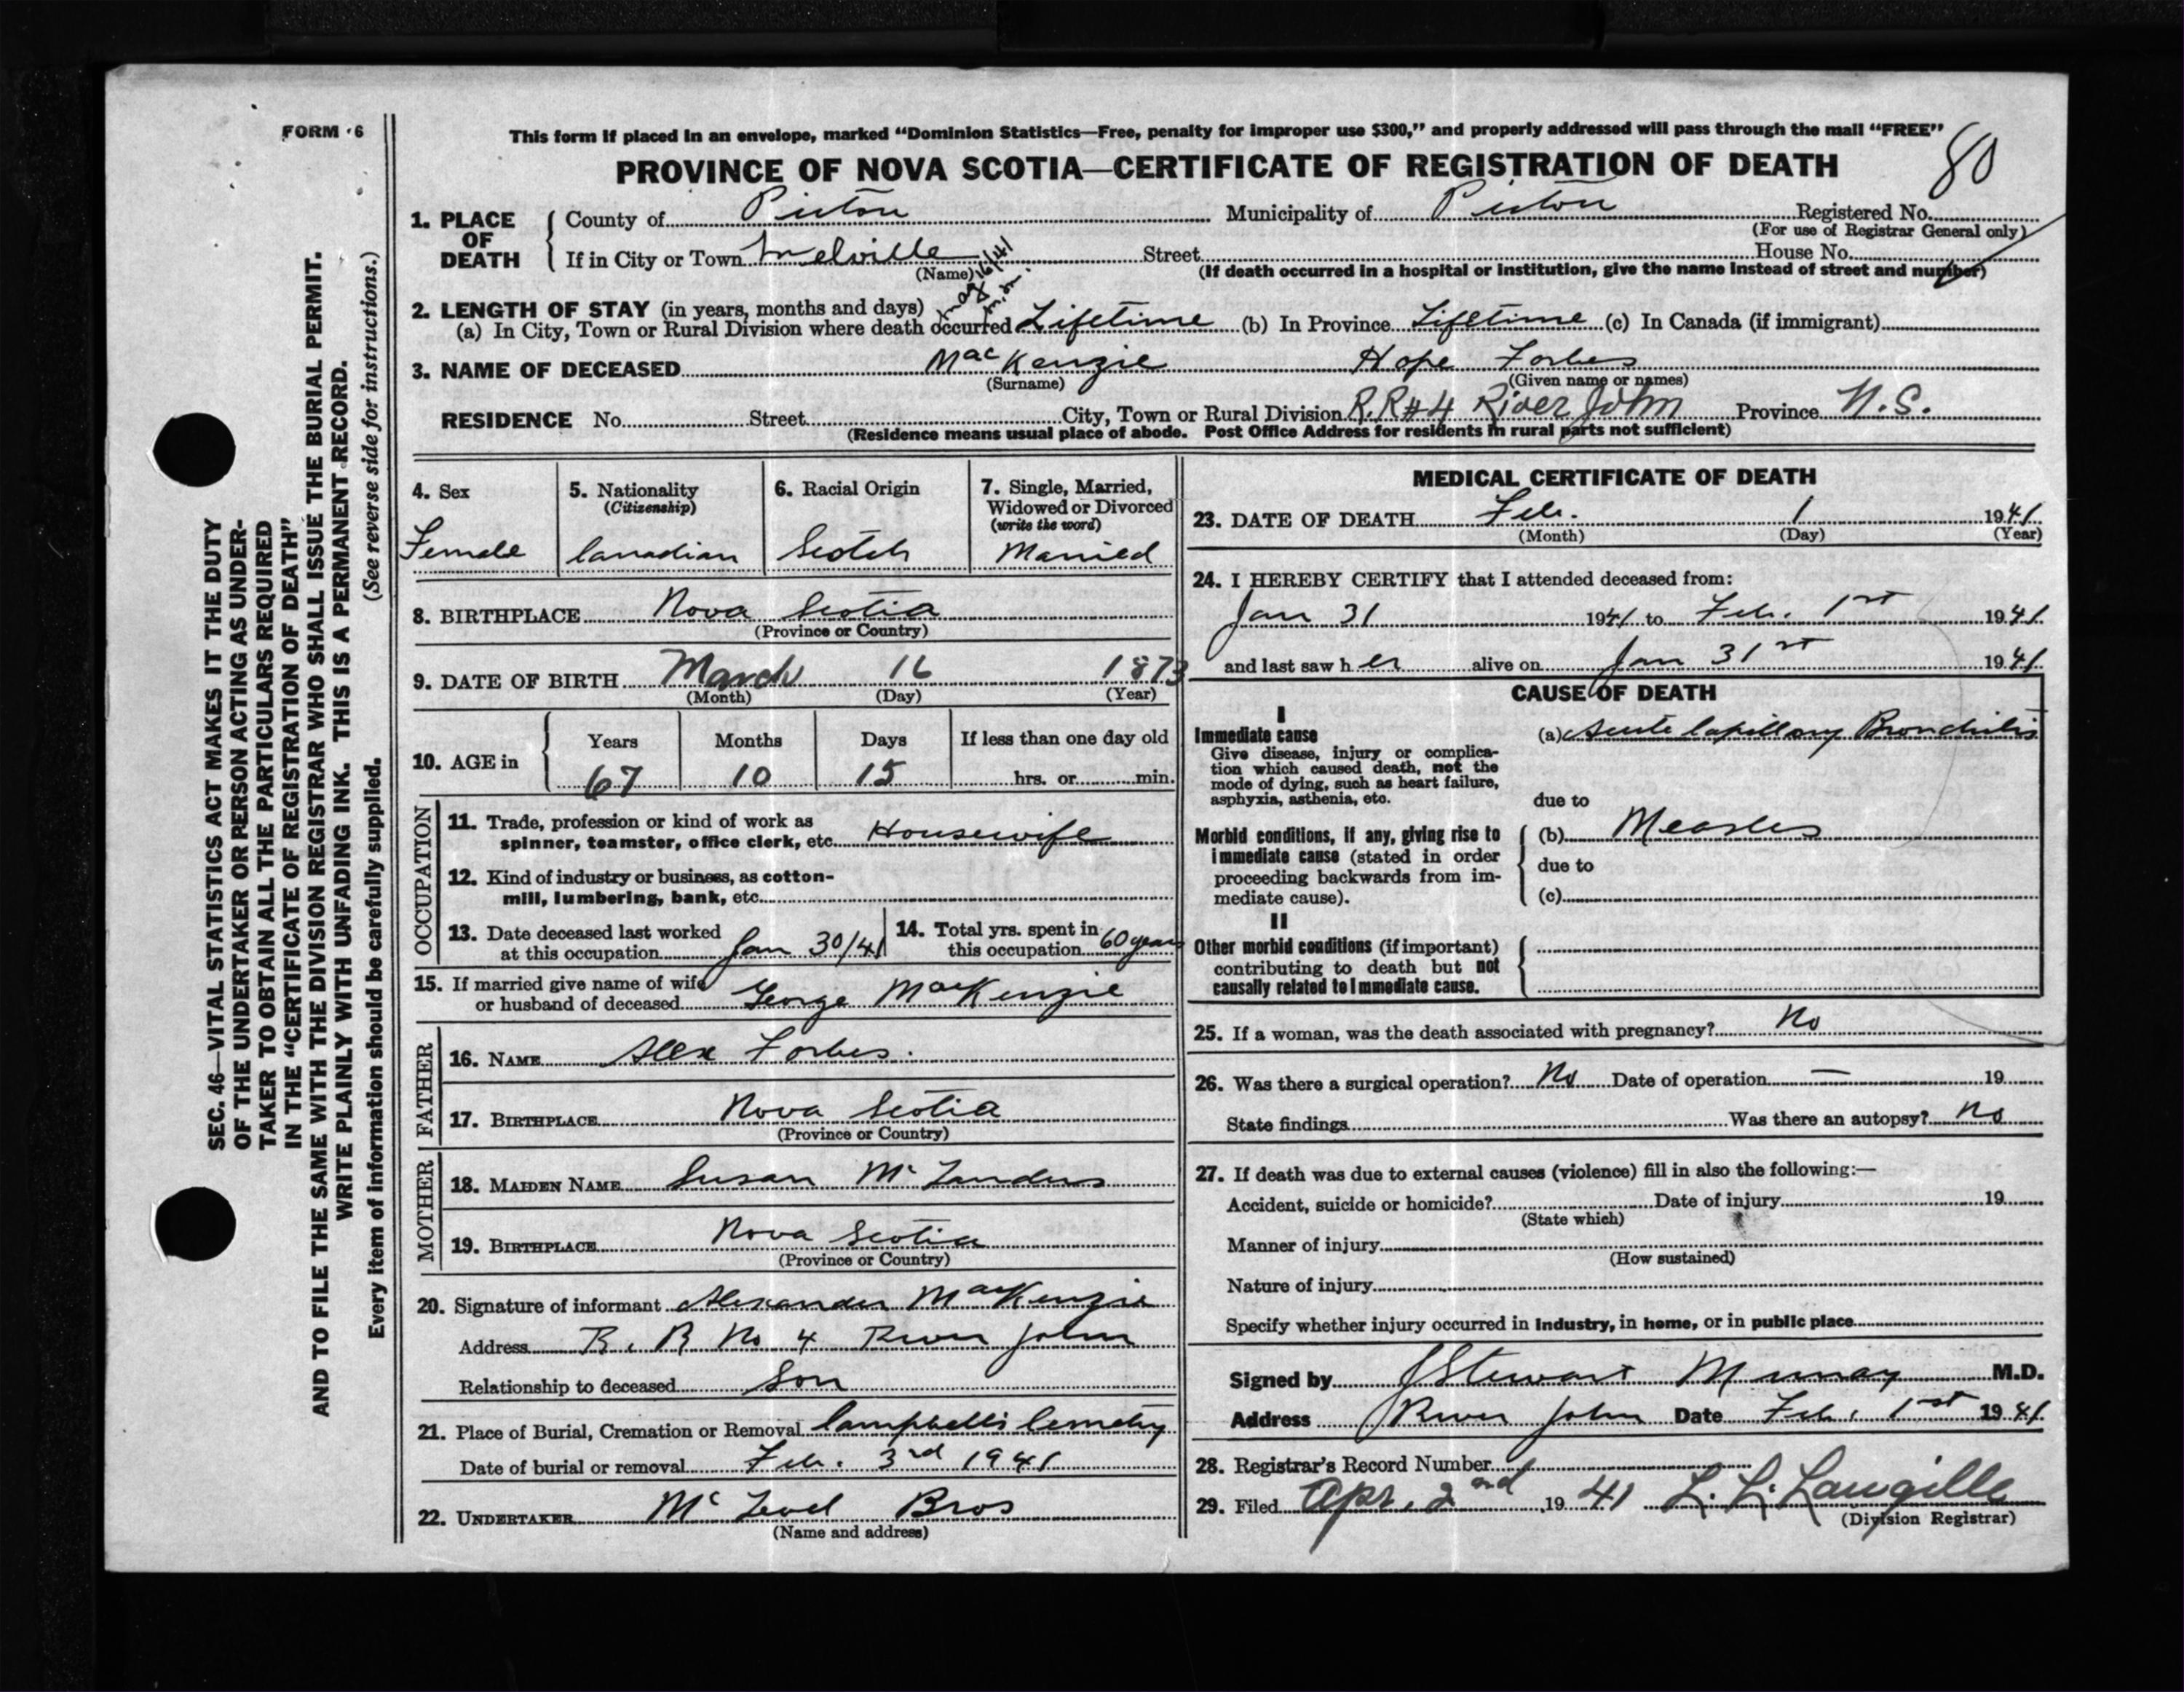 FORM 6
This form if placed in an envelope, marked "Dominion Statistics—Free, penalty for improper use $300," and properly addressed will pass through the mail "FREE"
PROVINCE OF NOVA SCOTIA—CERTIFICATE OF REGISTRATION OF DEATH
80
1. PLACE OF DEATH
County of Pictou Municipality of Pictou Registered No.
(For use of Registrar General only)
If in City or Town Melville Street House No.
(Name) (If death occurred in a hospital or institution, give the name instead of street and number)
May 16/41
2. LENGTH OF STAY (in years, months and days)
(a) In City, Town or Rural Division where death occurred Lifetime (b) In Province Lifetime (c) In Canada (if immigrant)
3. NAME OF DECEASED MacKenzie Hope Forbes
(Surname) (Given name or names)
RESIDENCE No. Street City, Town or Rural Division R.R#4 River John Province N.S.
(Residence means usual place of abode. Post Office Address for residents in rural parts not sufficient)
4. Sex
Female
5. Nationality
(Citizenship)
Canadian
6. Racial Origin
Scotch
7. Single, Married,
Widowed or Divorced
(write the word)
Married
8. BIRTHPLACE Nova Scotia
(Province or Country)
9. DATE OF BIRTH March 16 1873
(Month) (Day) (Year)
10. AGE in
Years Months Days If less than one day old
67 10 15 hrs. or min.
OCCUPATION
11. Trade, profession or kind of work as
spinner, teamster, office clerk, etc. Housewife
12. Kind of industry or business, as cotton-
mill, lumbering, bank, etc.
13. Date deceased last worked
at this occupation Jan 30/41
14. Total yrs. spent in
this occupation 60 years
15. If married give name of wife
or husband of deceased George MacKenzie
FATHER
16. NAME Alex Forbes.
17. BIRTHPLACE Nova Scotia
(Province or Country)
MOTHER
18. MAIDEN NAME Susan
19. BIRTHPLACE Nova Scotia
(Province or Country)
20. Signature of informant Alexander MacKenzie
Address R. R No 4 River John
Relationship to deceased Son
21. Place of Burial, Cremation or Removal Campbells Cemetry
Date of burial or removal Feb. 3rd 1941
22. UNDERTAKER Bros
(Name and address)
MEDICAL CERTIFICATE OF DEATH
23. DATE OF DEATH Feb. 1 1941
(Month) (Day) (Year)
24. I HEREBY CERTIFY that I attended deceased from:
Jan 31 1941 to Feb. 1st 1941
and last saw her alive on Jan 31st 1941
CAUSE OF DEATH
I
Immediate cause
Give disease, injury or complica-
tion which caused death, not the
mode of dying, such as heart failure,
asphyxia, asthenia, etc.
(a) Acute Capillary Bronchitis
due to
Morbid conditions, if any, giving rise to
immediate cause (stated in order
proceeding backwards from im-
mediate cause).
(b) Measles
due to
(c)
II
Other morbid conditions (if important)
contributing to death but not
causally related to immediate cause.
25. If a woman, was the death associated with pregnancy? No
26. Was there a surgical operation? No Date of operation — 19
State findings Was there an autopsy? No
27. If death was due to external causes (violence) fill in also the following:—
Accident, suicide or homicide? Date of injury 19
(State which)
Manner of injury
(How sustained)
Nature of injury
Specify whether injury occurred in industry, in home, or in public place
Signed by J Stewart Murray M.D.
Address River John Date Feb. 1st 1941
28. Registrar's Record Number
29. Filed Apr. 2nd 1941 L. L. Langille
(Division Registrar)
SEC. 46—VITAL STATISTICS ACT MAKES IT THE DUTY
OF THE UNDERTAKER OR PERSON ACTING AS UNDER-
TAKER TO OBTAIN ALL THE PARTICULARS REQUIRED
IN THE "CERTIFICATE OF REGISTRATION OF DEATH"
AND TO FILE THE SAME WITH THE DIVISION REGISTRAR WHO SHALL ISSUE THE BURIAL PERMIT.
WRITE PLAINLY WITH UNFADING INK. THIS IS A PERMANENT RECORD.
Every item of information should be carefully supplied. (See reverse side for instructions.)